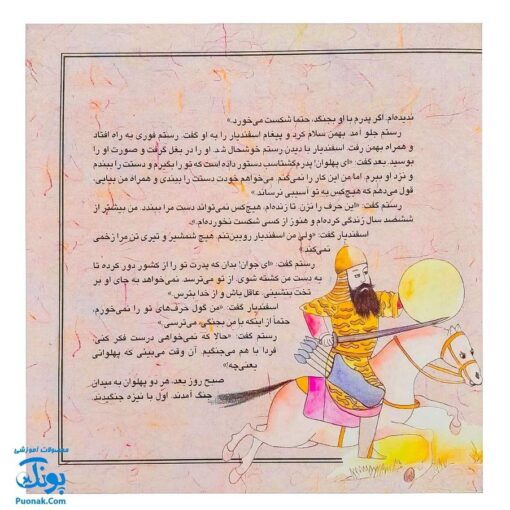 ندیده‌ام. اگر پدرم با او بجنگد، حتماً شکست می‌خورد.»
رستم جلو آمد. بهمن سلام کرد و پیغام اسفندیار را به او گفت. رستم فوری به راه افتاد
و همراه بهمن رفت. اسفندیار با دیدن رستم خوشحال شد. او را در بغل گرفت و صورت او را
بوسید. بعد گفت: «ای پهلوان! پدرم گشتاسب دستور داده است که تو را بگیرم و دستت را ببندم
و نزد او ببرم. اما من این کار را نمی‌کنم. می‌خواهم خودت دستت را ببندی و همراه من بیایی.
قول می‌دهم که هیچ‌کس به تو آسیبی نرساند.»
رستم گفت: «این حرف را نزن. تا زنده‌ام، هیچ‌کس نمی‌تواند دست مرا ببندد. من بیشتر از
ششصد سال زندگی کرده‌ام و هنوز از کسی شکست نخورده‌ام.»
اسفندیار گفت: «ولی من اسفندیار رویین‌تنم. هیچ شمشیر و تیری تن مرا زخمی
نمی‌کند.»
رستم گفت: «ای جوان! بدان که پدرت تو را از کشور دور کرده تا
به دست من کشته شوی. از تو می‌ترسد. نمی‌خواهد به جای او بر
تخت بنشینی. عاقل باش و از خدا بترس.»
اسفندیار گفت: «من گول حرف‌های تو را نمی‌خورم.
حتماً از اینکه با من بجنگی، می‌ترسی.»
رستم گفت: «حالا که نمی‌خواهی درست فکر کنی،
فردا با هم می‌جنگیم. آن وقت می‌بینی که پهلوانی
یعنی‌چه!»
صبح روز بعد، هر دو پهلوان به میدان
جنگ آمدند. اول با نیزه جنگیدند.
محصولات آموزشی
پونک
Puonak.Com